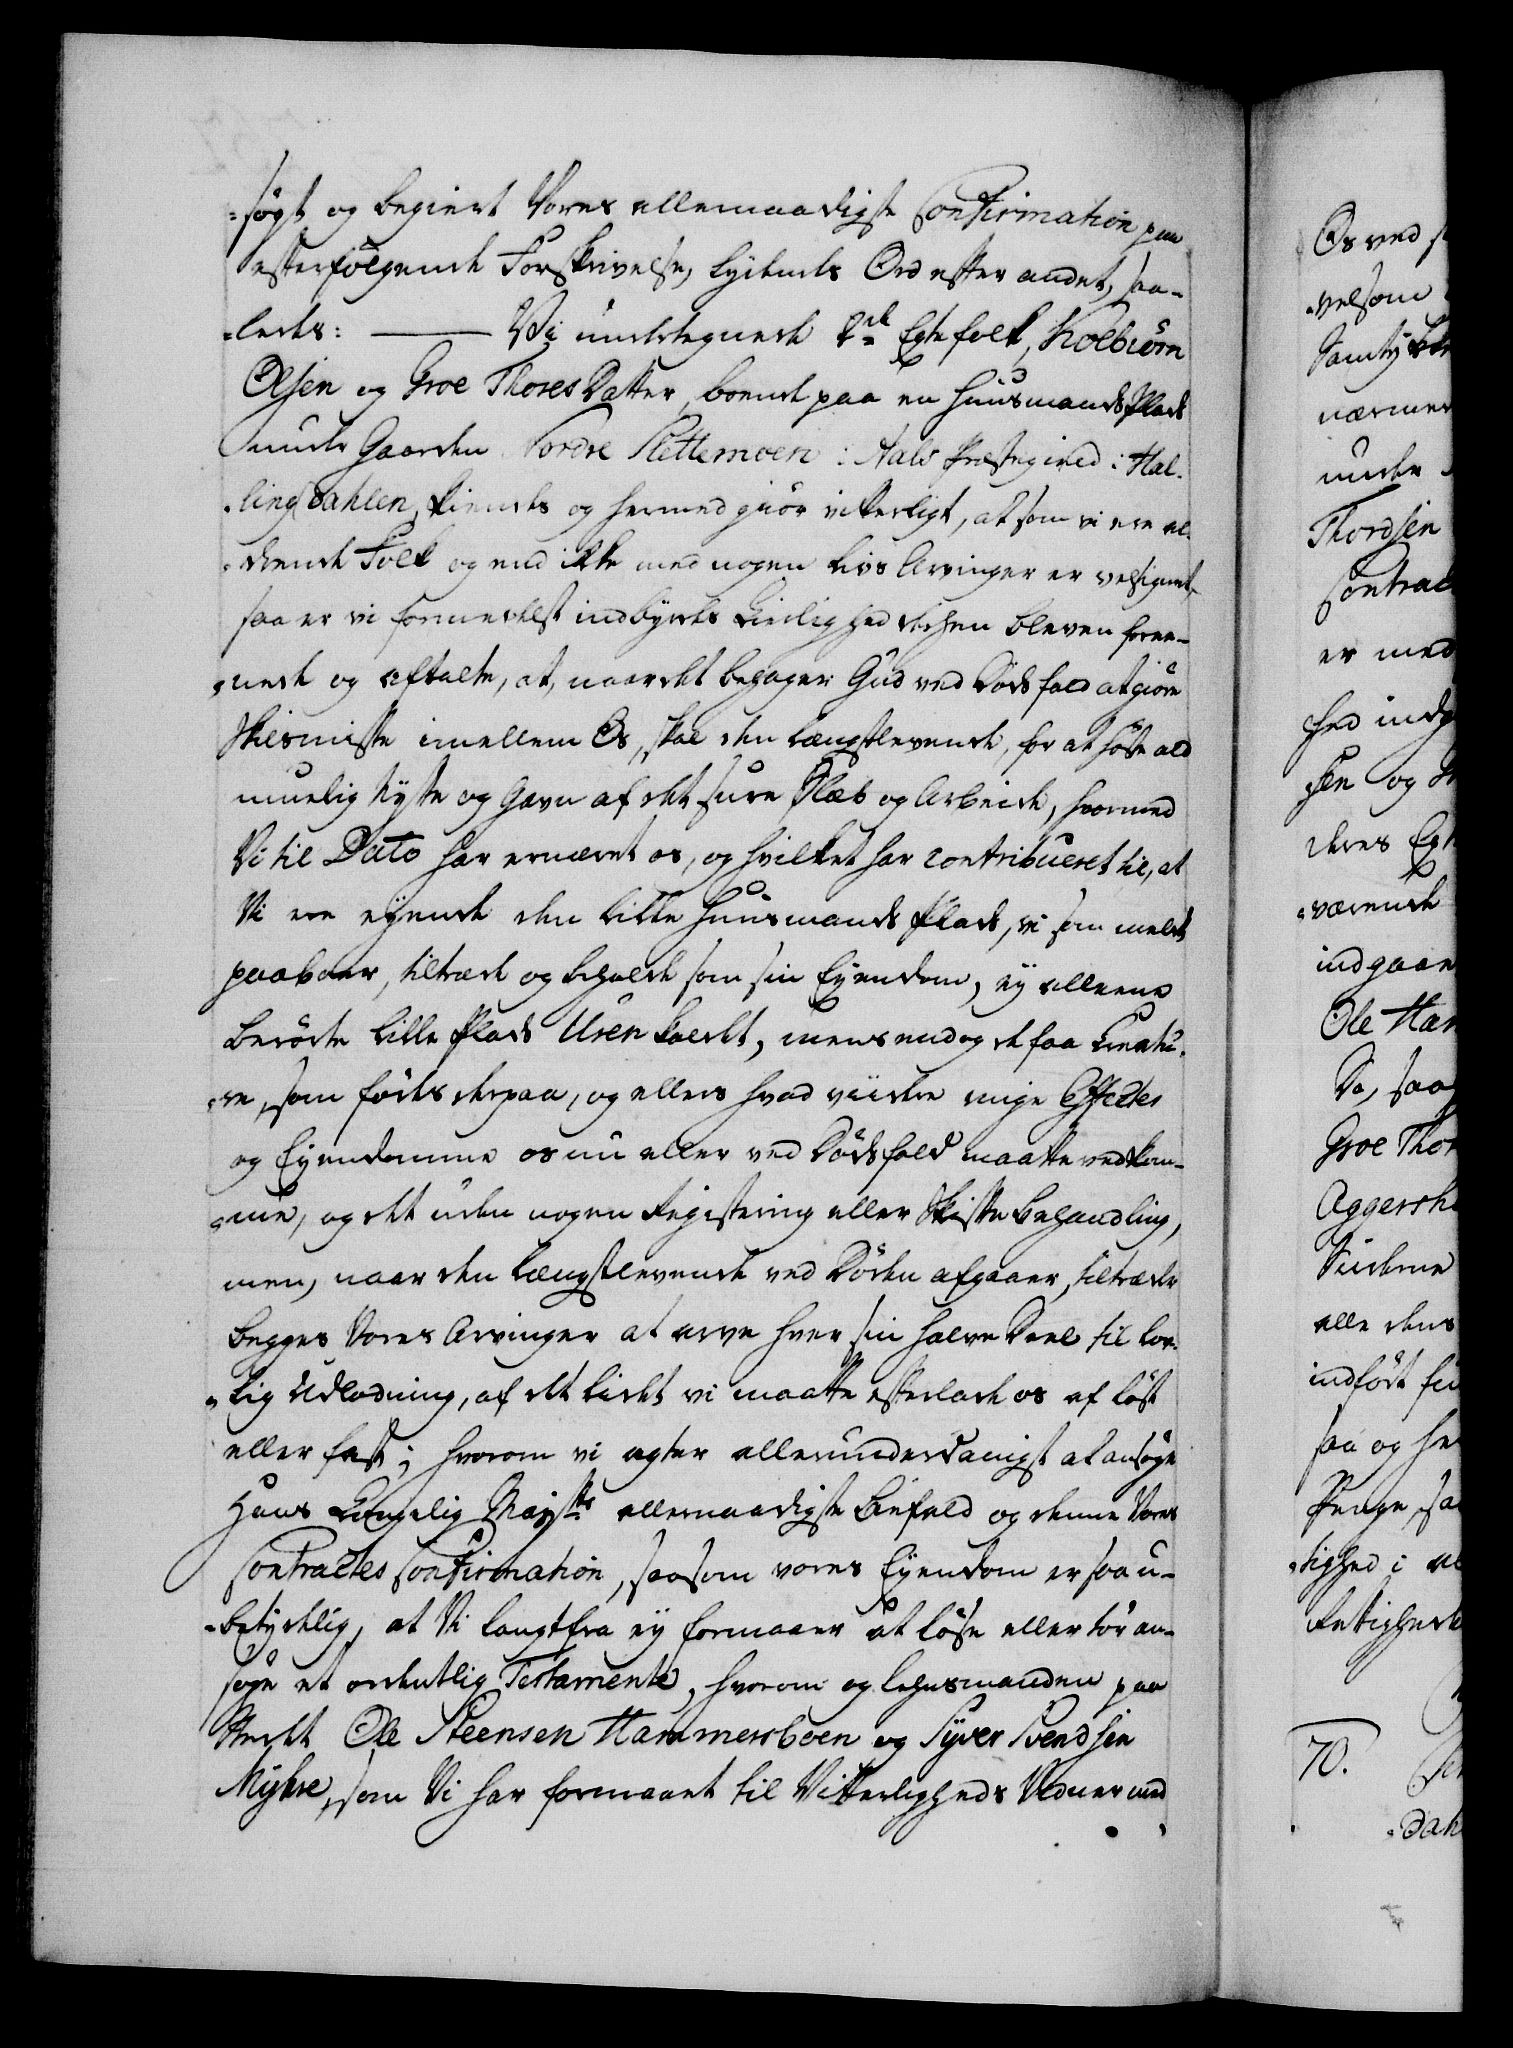 -søgt og begiert Vores allernaadigste Confirmation paa
efterfølgende Forskrivelse, lydende Ord efter andet, saa-
-ledes: ——— Vi undertegnede 2de Egtefolk, Kolbiørn
Olsen og Groe Thores Datter, boende paa en Huusmands Plads
under Gaarden Nordre Plettemoen i Aals Præstegield i Hal-
-lingdahlen, kiendes og hermed giør vitterligt, at som vi ere al-
-drende Folk og end ikke med nogen Livs Arvinger er velsignet,
saa er vi formedelst indbyrdes Kierlighed derhen bleven foree-
-nede og aftalte, at, naar det behager Gud ved Dødsfald at giøre
Skilsmisse imellem Os, skal den længstlevende, for at høste ald
muelig Nytte og Gavn af det sure Slæb og Arbeide, hvormed
Vi til Dato har ernæret os, og hvilket har contribueret til, at
Vi ere eyende den lille Huusmands Plads, vi som meldt
paaboer, tiltræde og beholde som sin Eyendom, ey alleene
berørte lille Plads Uren kaldet, mens endog de faa Creatu-
-re, som fødes derpaa, og ellers hvad viidere ringe Effecter
og Eyendomme os nu eller ved Dødsfald maatte vedkom-
-me, og det uden nogen Registering eller Skifte Behandling,
men, naar den Længstlevende ved Døden afgaaer, tiltræder
begges Vores Arvinger at arve hver sin halve Deel til lov-
-lig Udlodning, af det lidet vi maatte efterlade os af løst
eller fast; hvorom vi agter allerunderdanigst at ansøge
Hans Kongelig Mayts allernaadigste Befald og denne Vores
Contractes Confirmation, saasom vores Eyendom er saa u-
-betydelig, at Vi langtfra ey formaaer at løse eller tør an-
søge et ordentlig Testamente, hvorom og Lehnsmanden paa
Stedet Ole Steensen Hammersboen og Syver Svendsen
Myhre, som Vi har formaaet til Vitterligheds Vidner med
Os ved
-velsom
Samty
nærmer
under
Thordsen
Contrac
er med
hed indg
sen og
deres Eg
-værende
indgaae
Ole Ham
Da, saa
Groe Tho
Aggersh
Suiderne
alle dens
indført
saa og he
Penge, sa
-tighed i
Rettighed
70.
-dah